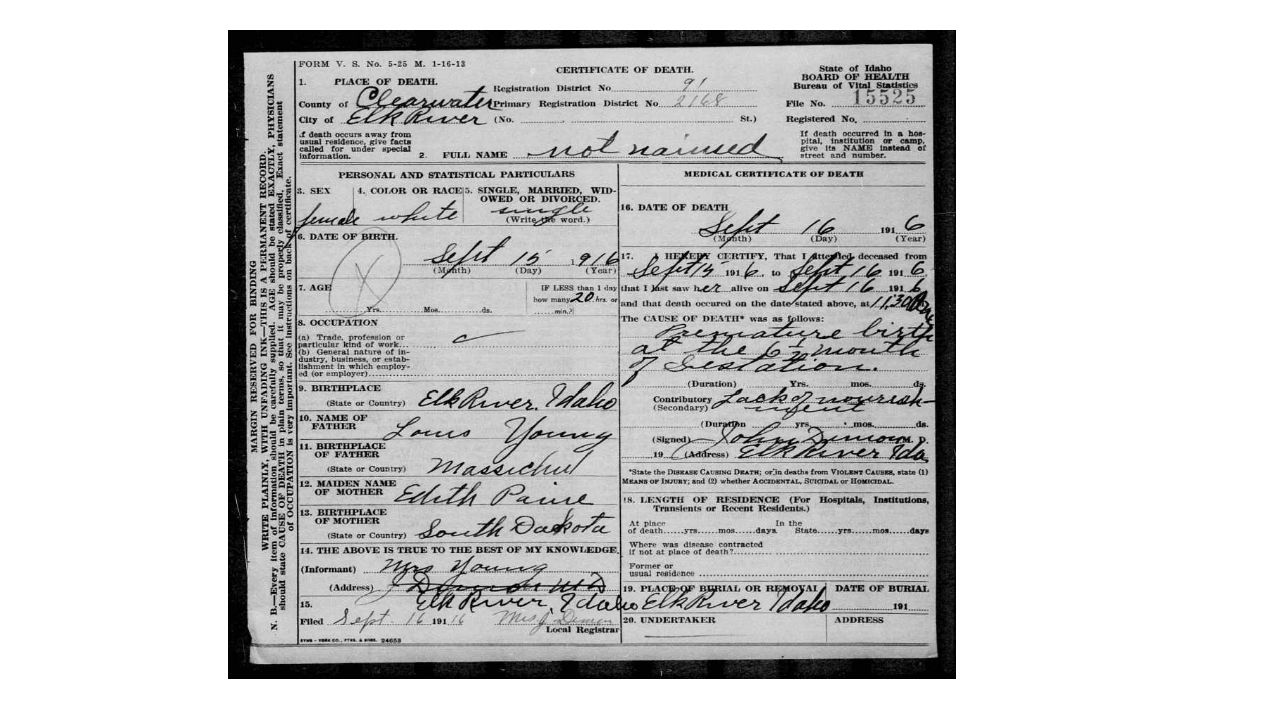 FORM V. S. No. 5-25 M. 1-16-13
CERTIFICATE OF DEATH.
State of Idaho
BOARD OF HEALTH
Bureau of Vital Statistics
File No. 15525
Registered No.
1. PLACE OF DEATH.
Registration District No 91
County of Clearwater Primary Registration District No 2168
City of Elk River (No. St.)
If death occurs away from
usual residence, give facts
called for under special
information.
2. FULL NAME not naimed
If death occurred in a hos-
pital, institution or camp,
give its NAME instead of
street and number.
MARGIN RESERVED FOR BINDING
WRITE PLAINLY, WITH UNFADING INK—THIS IS A PERMANENT RECORD.
N. B.—Every item of information should be carefully supplied. AGE should be stated EXACTLY, PHYSICIANS
should state CAUSE OF DEATH in plain terms, so that it may be properly classified. Exact statement
of OCCUPATION is very important. See instructions on back of certificate.
PERSONAL AND STATISTICAL PARTICULARS
3. SEX 4. COLOR OR RACE 5. SINGLE, MARRIED, WID-
OWED OR DIVORCED.
female white single
(Write the word.)
6. DATE OF BIRTH.
Sept 15 1916
(Month) (Day) (Year)
7. AGE
IF LESS than 1 day
how many 20 hrs. or
Yrs. Mos. ds. min.?
8. OCCUPATION
(a) Trade, profession or
particular kind of work
(b) General nature of in-
dustry, business, or estab-
lishment in which employ-
ed (or employer)
9. BIRTHPLACE
(State or Country) Elk River, Idaho
10. NAME OF
FATHER Louis Young
11. BIRTHPLACE
OF FATHER
(State or Country) Massichut
12. MAIDEN NAME
OF MOTHER Edith Paine
13. BIRTHPLACE
OF MOTHER
(State or Country) South Dackota
14. THE ABOVE IS TRUE TO THE BEST OF MY KNOWLEDGE.
(Informant) Mrs Young
(Address)
Elk River, Idaho
15.
Filed Sept. 16 1916 Mrs J. Dimon
Local Registrar
SYMS-YORK CO., PTRS. & BNDS. 24653
MEDICAL CERTIFICATE OF DEATH
16. DATE OF DEATH
Sept 16 1916
(Month) (Day) (Year)
17. I HEREBY CERTIFY, That I attended deceased from
Sept 15 1916. to Sept 16 1916.
that I last saw her alive on Sept 16 1916
and that death occured on the date stated above, at 11,30
The CAUSE OF DEATH* was as follows:
Premature birth
at the 6½ month
of Gestation.
(Duration) Yrs. mos. ds.
Contributory Lack of nourish-
(Secondary) ment
(Duration yrs. mos. ds.
(Signed) John Dimon M. D.
19 (Address) Elk River Ida
*State the DISEASE CAUSING DEATH; or, in deaths from VIOLENT CAUSES, state (1)
MEANS OF INJURY; and (2) whether ACCIDENTAL, SUICIDAL or HOMICIDAL.
18. LENGTH OF RESIDENCE (For Hospitals, Institutions,
Transients or Recent Residents.)
At place In the
of death yrs. mos. days State yrs. mos. days
Where was disease contracted
if not at place of death?
Former or
usual residence
19. PLACE OF BURIAL OR REMOVAL DATE OF BURIAL
Elk River Idaho 191
20. UNDERTAKER ADDRESS